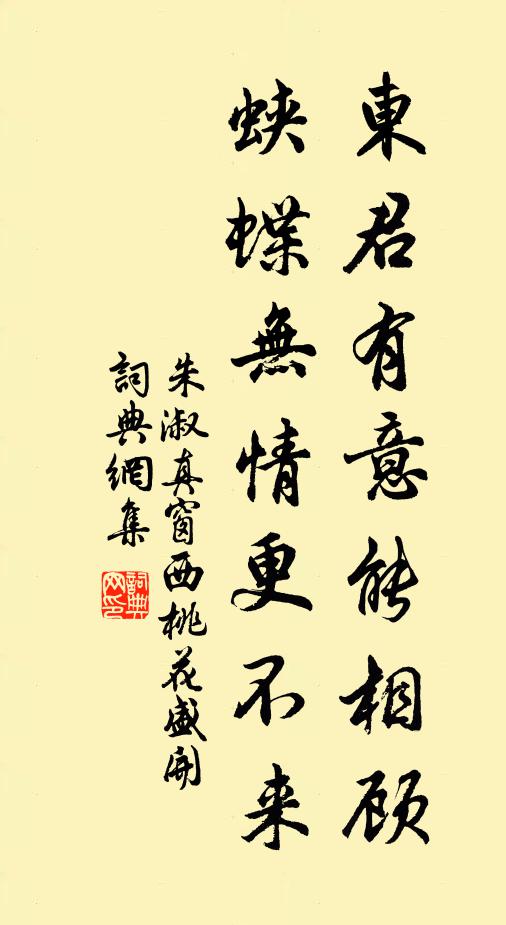 東君有意能相顾
蛺蝶無情更不来
朱淑真窗西桃花盛開
詞典網集
詞典网印